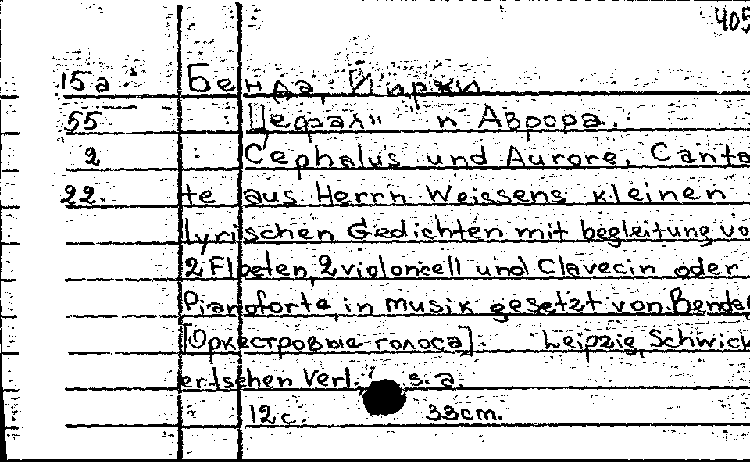 405
15а Бенда, Йиржи
55 Цефалий и Аврора.
2 Cephalus und Aurore, Canta
22. te aus Herrn Weissens kleinen
lyrischen Gedichten mit begleitung vo
2 Floeten, 2 violoncell und Clavecin oder
Pianoforte, in musik gesetzt von Benda,
[Оркестровые голоса]. Leipzig, Schwick
ertschen Verl., s. a.
12 с. 33 cm.